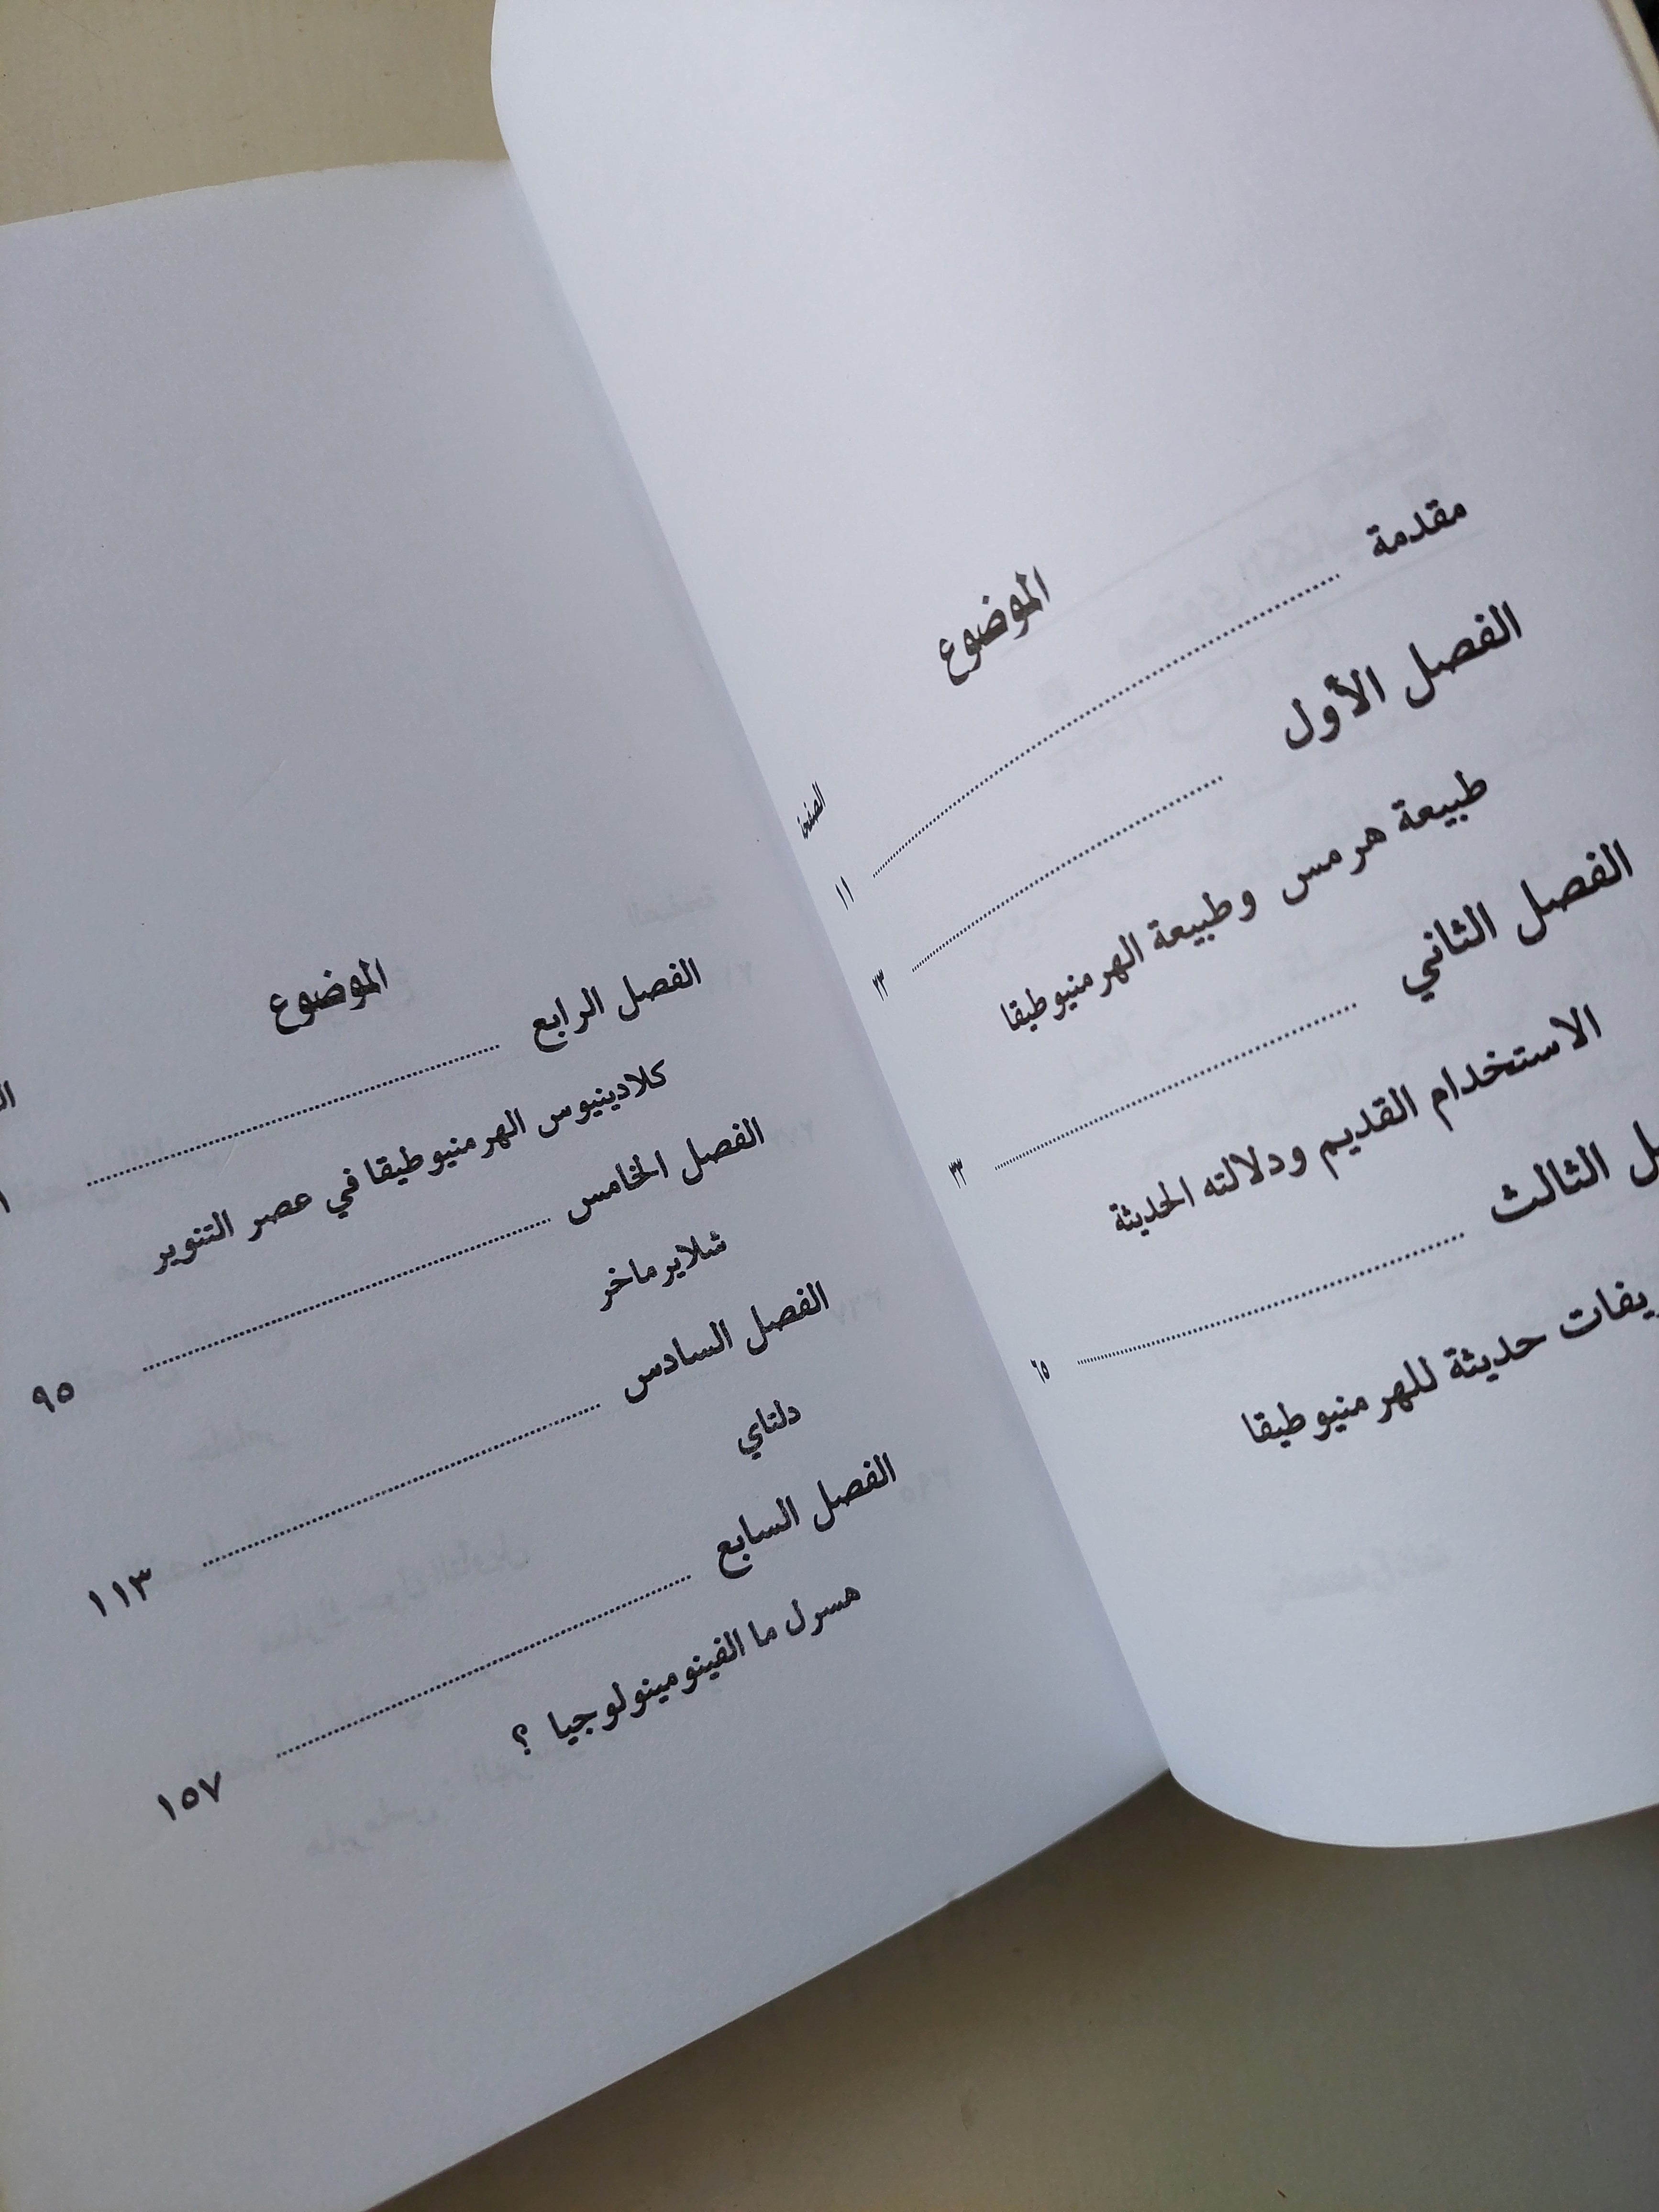 الموضوع
الصفحة
مقدمة ........ ١١
الفصل الأول ........ ٢٣
طبيعة هرمس وطبيعة الهرمنيوطيقا
الفصل الثاني ........ ٣٣
الاستخدام القديم ودلالته الحديثة
الثالث ........ ٦٥
حديثة للهرمنيوطيقا
الموضوع
الفصل الرابع ........
كلادينيوس الهرمنيوطيقا في عصر التنوير
الفصل الخامس ........ ٩٥
شلاير ماخر
الفصل السادس ........ ١١٣
دلتاي
الفصل السابع ........ ١٥٧
هسرل ما الفينومينولوجيا ؟